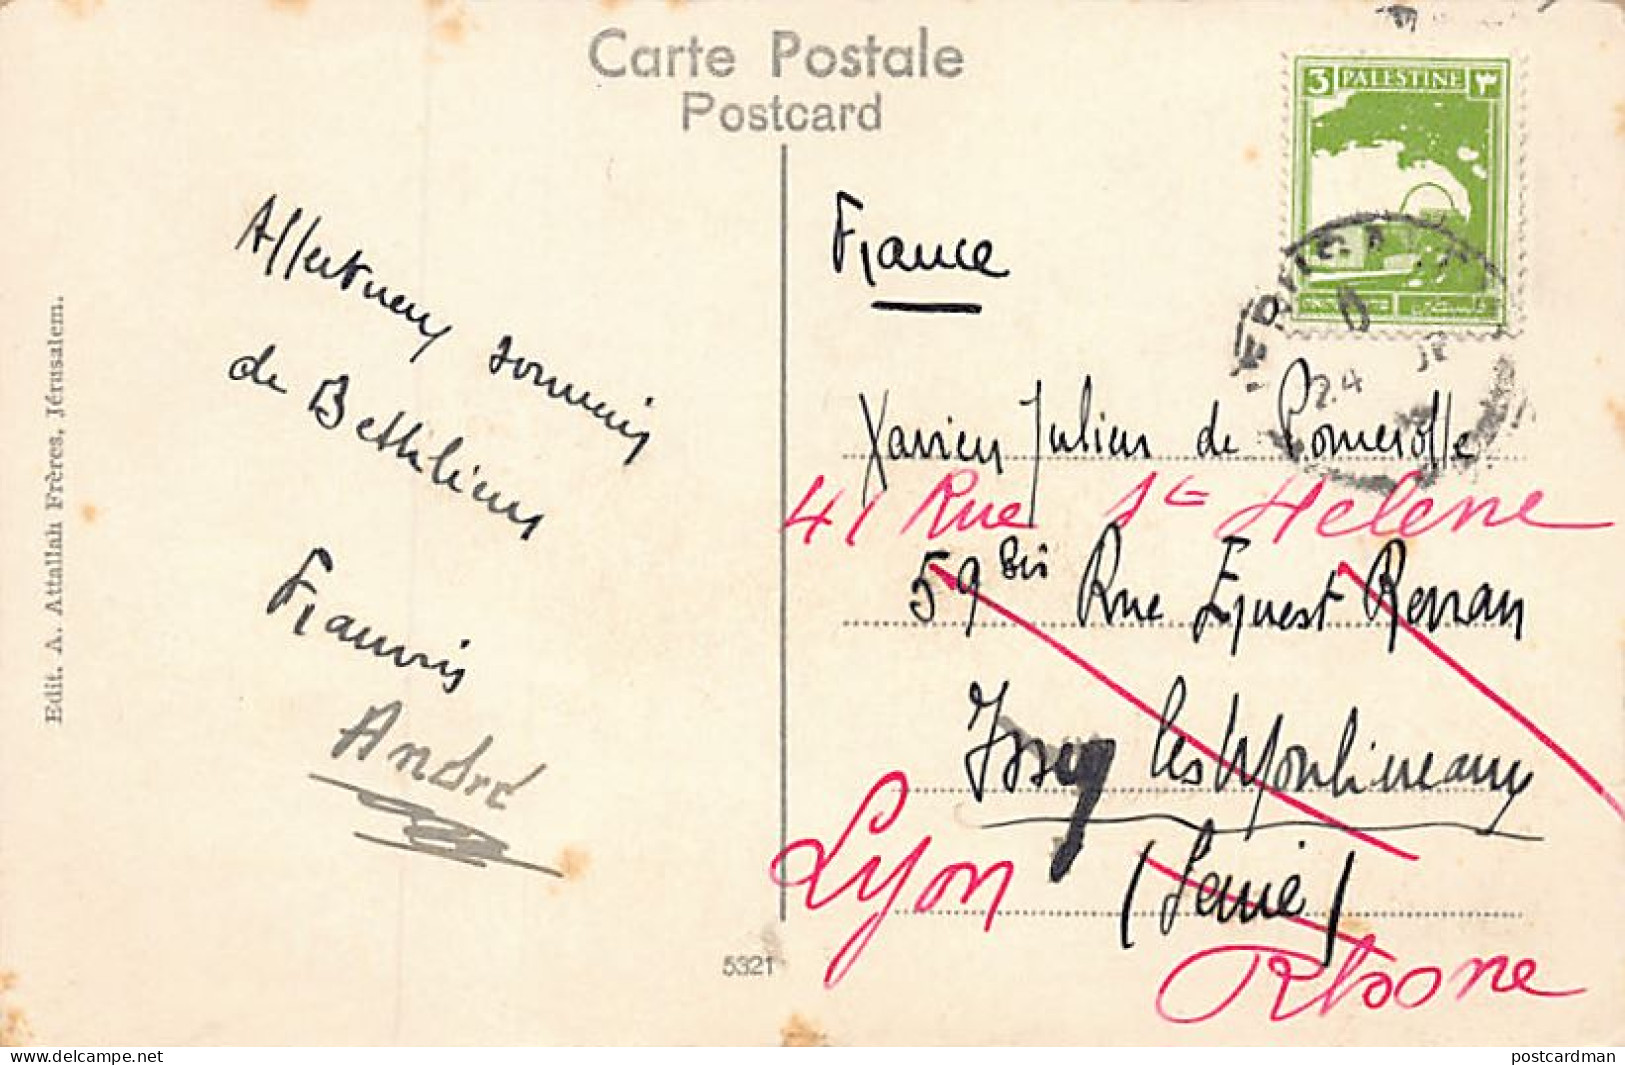 Carte Postale
Postcard
3 PALESTINE ٣
פלשתינה فلسطين
24
Edit. A. Attallah Frères, Jérusalem.
Affectueux souvenir
de Bethléem
François
André
France
Xavier Julien de Pomerolle
41 Rue Ste Helene
59 bis Rue Ernest Renan
Issy les Moulineaux
(Seine)
Lyon
Rhone
5321
www.delcampe.net
postcardman